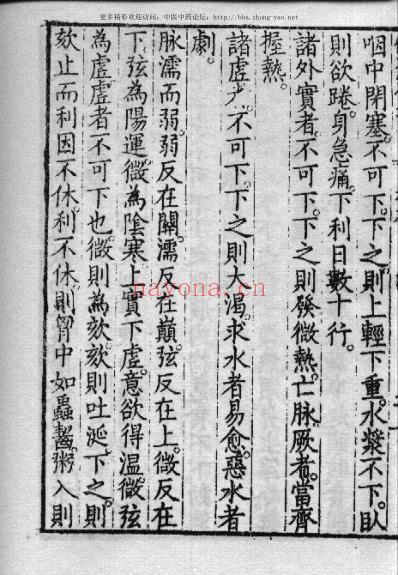 更多精彩欢迎访问：中医中药论坛：http://bbs.zhong-yao.net
咽中閉塞。不可下。下之則上輕下重。水漿不下。臥
則欲踡。身急痛。下利日數十行。
諸外實者。不可下。下之則發微熱。亡脉厥者。當齊
握熱。
諸虛者。不可下。下之則大渴。求水者易愈。惡水者
劇。
脉濡而弱。弱反在關。濡反在巔。弦反在上。微反在
下。弦為陽運。微為陰寒。上實下虛。意欲得温。微弦
為虛。虛者不可下也。微則為欬。欬則吐涎。下之。則
欬止而利因不休。利不休。則胷中如蟲齧。粥入則
nayona.cn